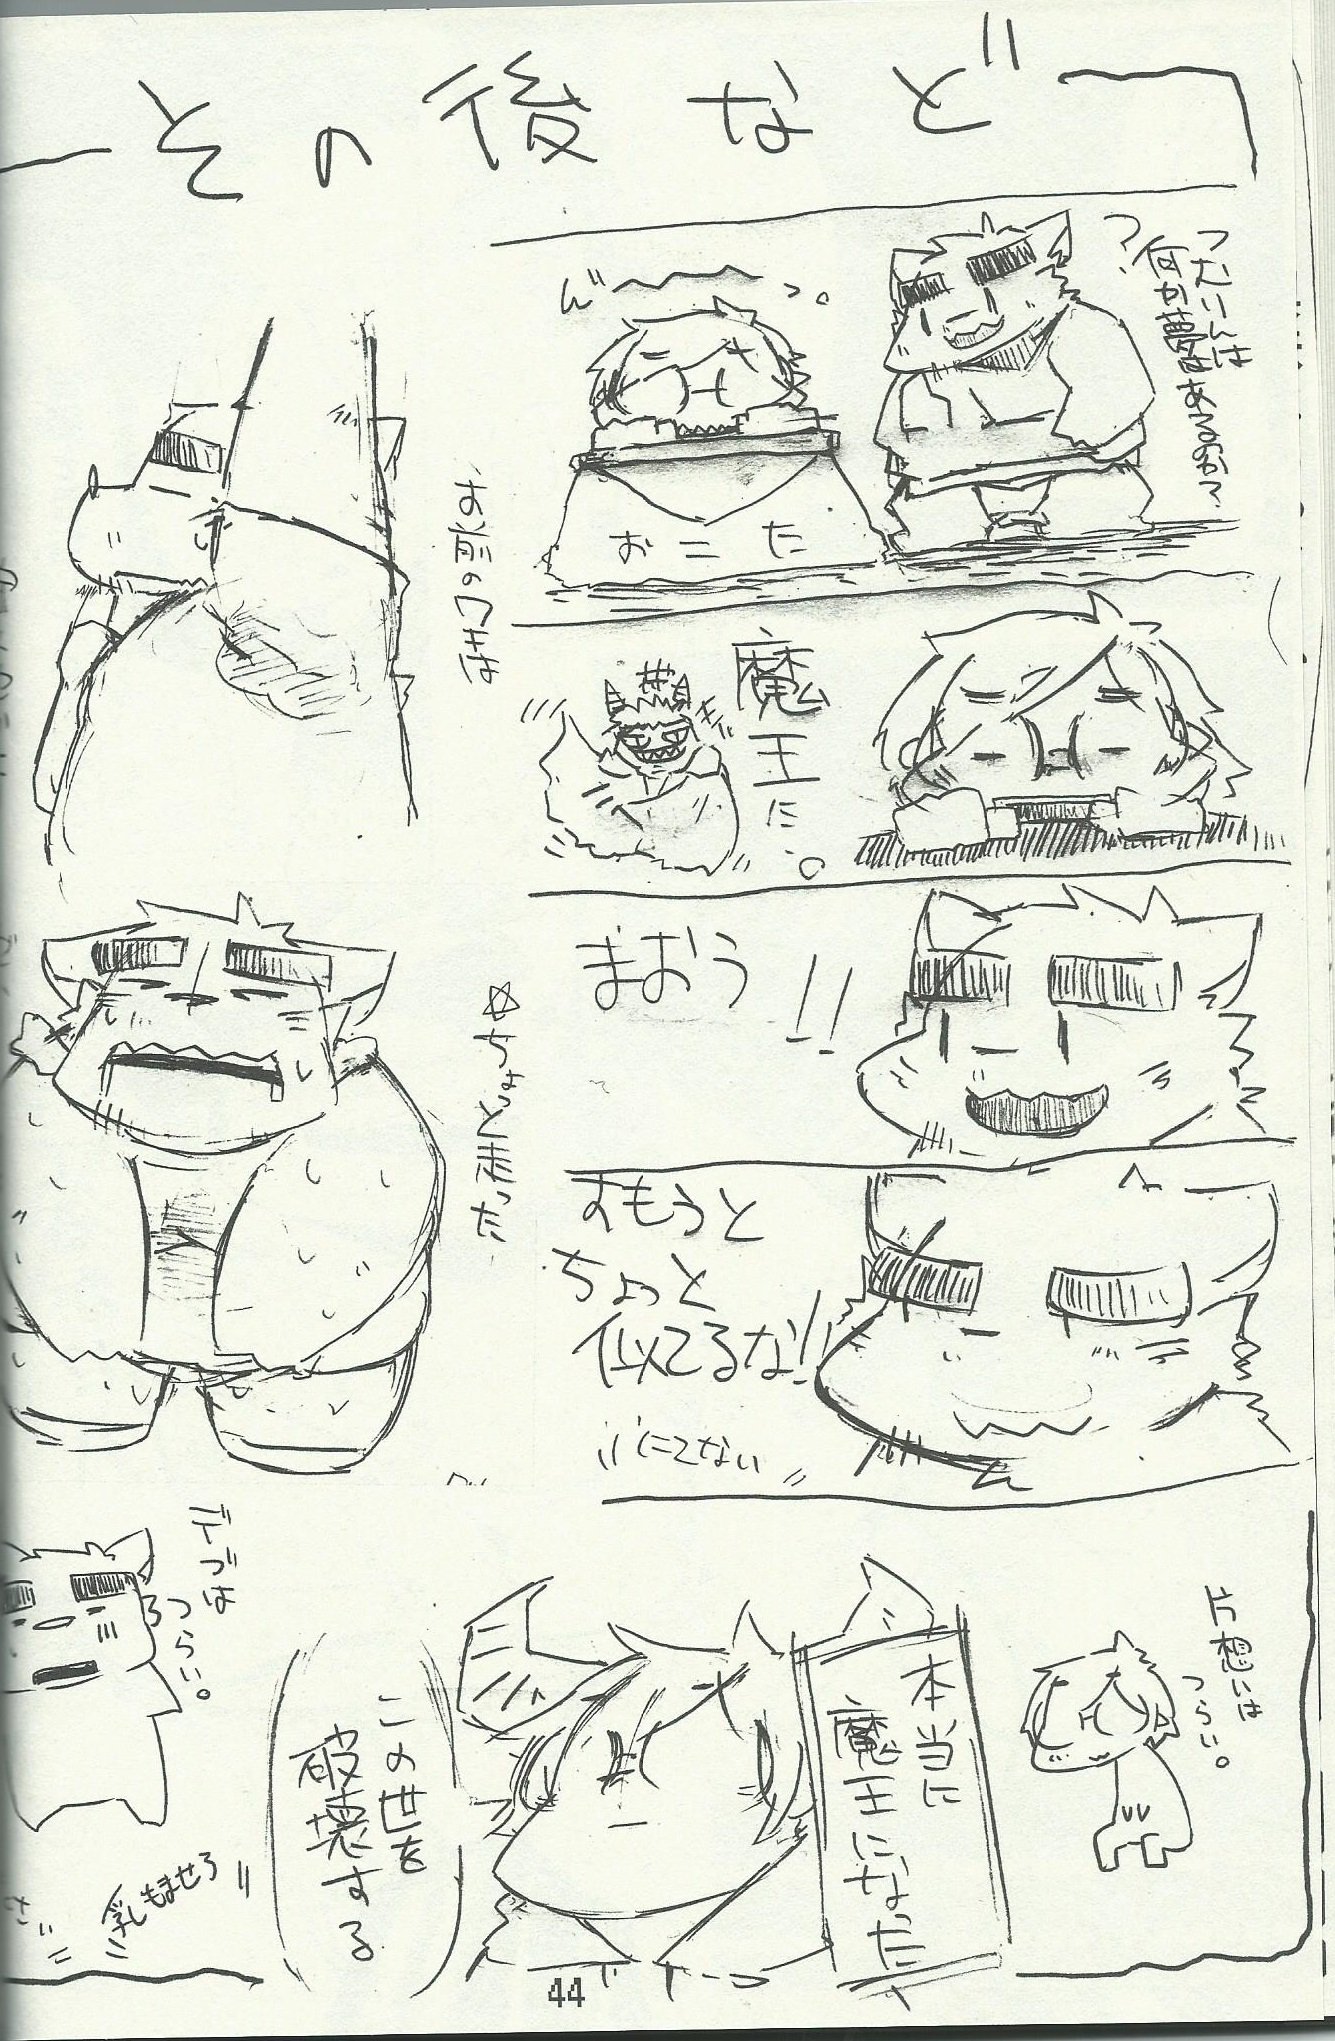 その後など
何か夢はあるか?
つ?
おこた
魔王に。
まおう!!
すもうと
ちょっと
似てるな!!
にてない
お前のワキは
☆ちょっと太った
片想いは
つらい。
本当に
魔王になった
この世を
破壊する
デブは
つらい。
乳もませろ
44